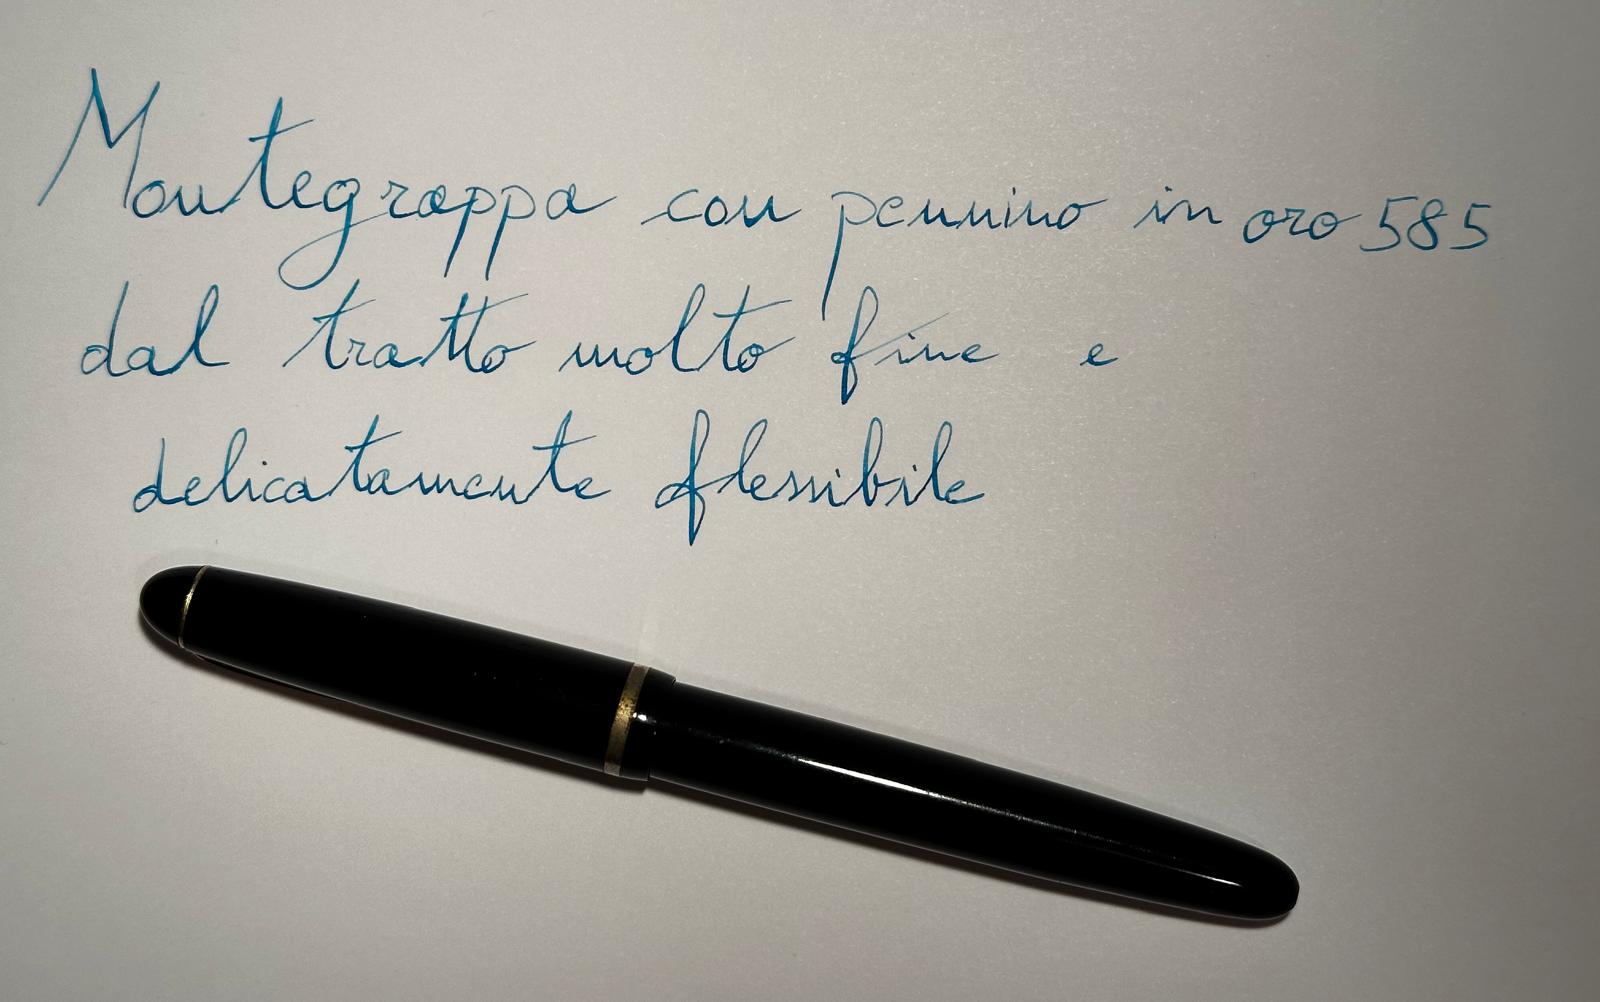 Montegrappa con pennino in oro 585
dal tratto molto fine e
delicatamente flessibile